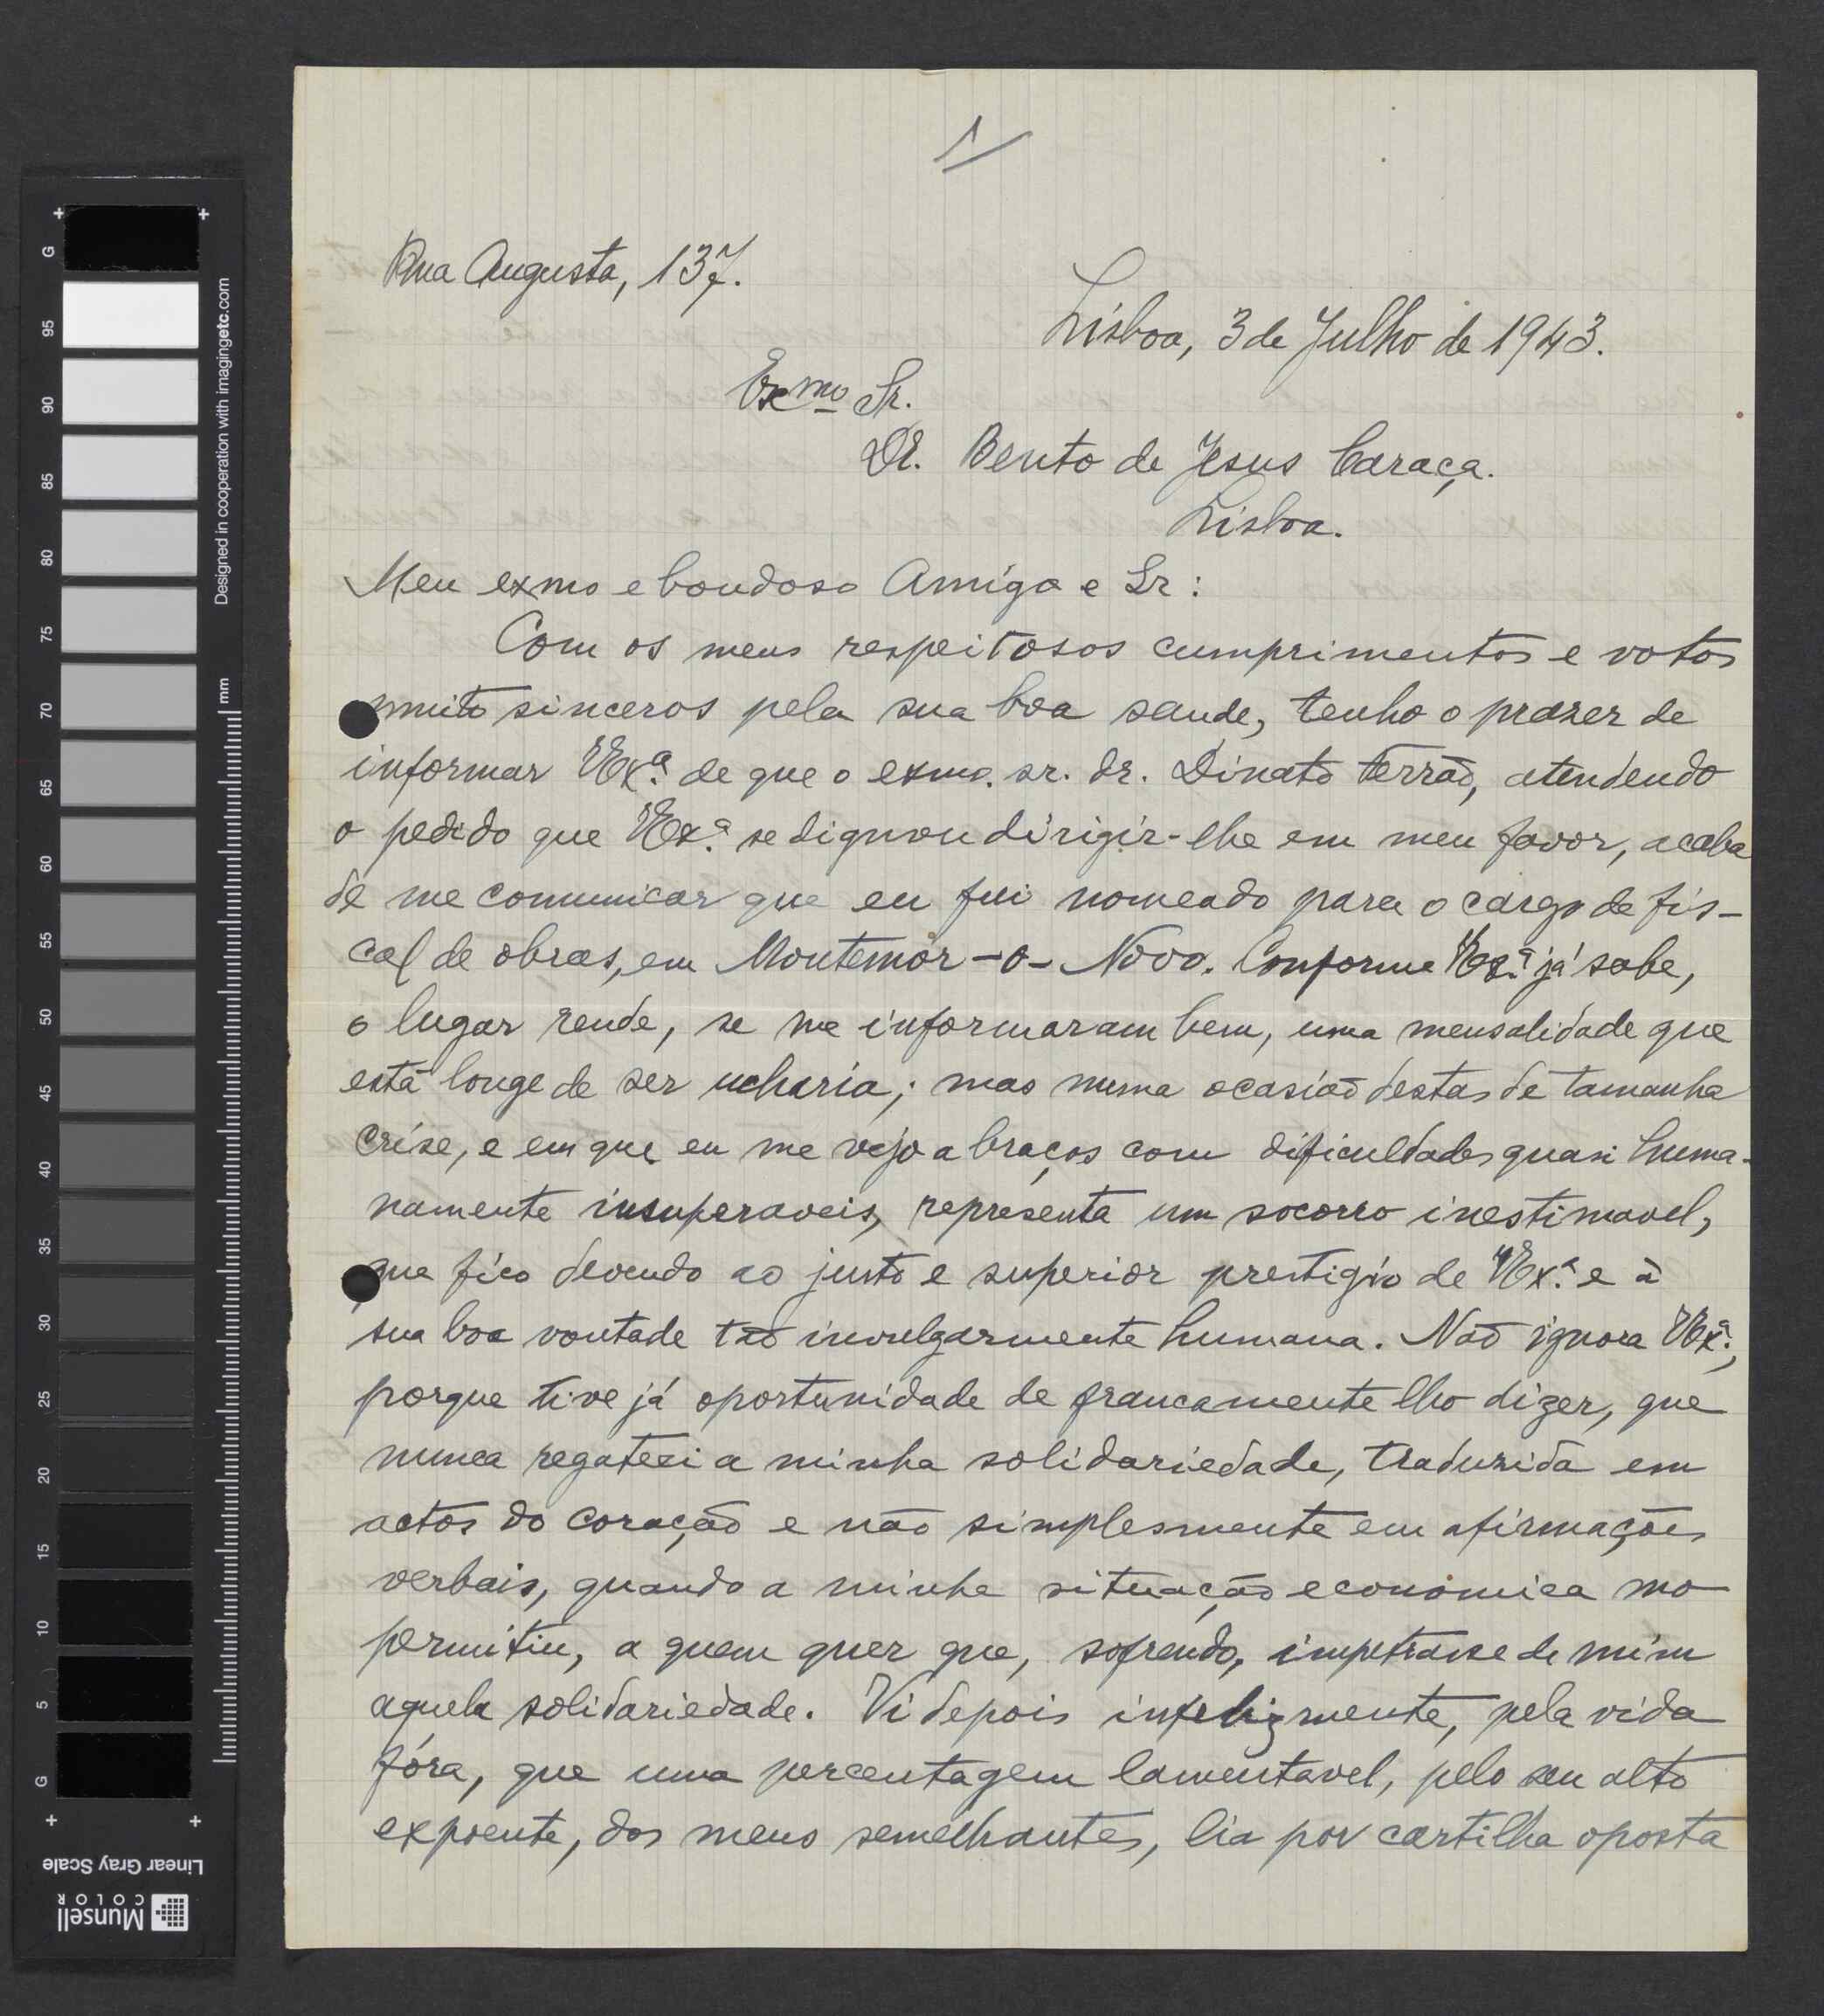 1/
Rua Augusta, 137.
Lisboa, 3 de Julho de 1943.
Exmo Sr.
Dr. Bento de Jesus Caraça.
Lisboa.
Meu exmo e bondoso Amigo e Sr:
Com os meus respeitosos cumprimentos e votos
muito sinceros pela sua boa saude, tenho o prazer de
informar VExª. de que o exmo. sr. dr. Dinato Terrão, atendendo
o pedido que VExª. se dignou dirigir-lhe em meu favor, acaba
de me comunicar que eu fui nomeado para o cargo de fis-
cal de obras, em Montemór-o-Novo. Conforme VExª. já sabe,
o lugar rende, se me informaram bem, uma mensalidade que
está longe de ser ucharia; mas numa ocasião destas de tamanha
crise, e em que eu me vejo a braços com dificuldades quasi huma-
namente insuperaveis, representa um socorro inestimavel,
que fico devendo ao justo e superior prestigio de VExª. e à
sua boa vontade tão invulgarmente humana. Não ignora VExª.,
porque tive já oportunidade de francamente lho dizer, que
nunca regateei a minha solidariedade, traduzida em
actos do coração e não simplesmente em afirmações
verbais, quando a minha situação economica mo
permitiu, a quem quer que, sofrendo, impetrasse de mim
aquela solidariedade. Vi depois infelizmente, pela vida
fóra, que uma percentagem lamentavel, pelo seu alto
expoente, dos meus semelhantes, lia por cartilha oposta
G
95
90
85
80
75
70
65
60
55
50
45
40
35
30
25
20
15
10
5
G
mm
Designed in cooperation with imagingetc.com
Linear Gray Scale
Munsell
COLOR